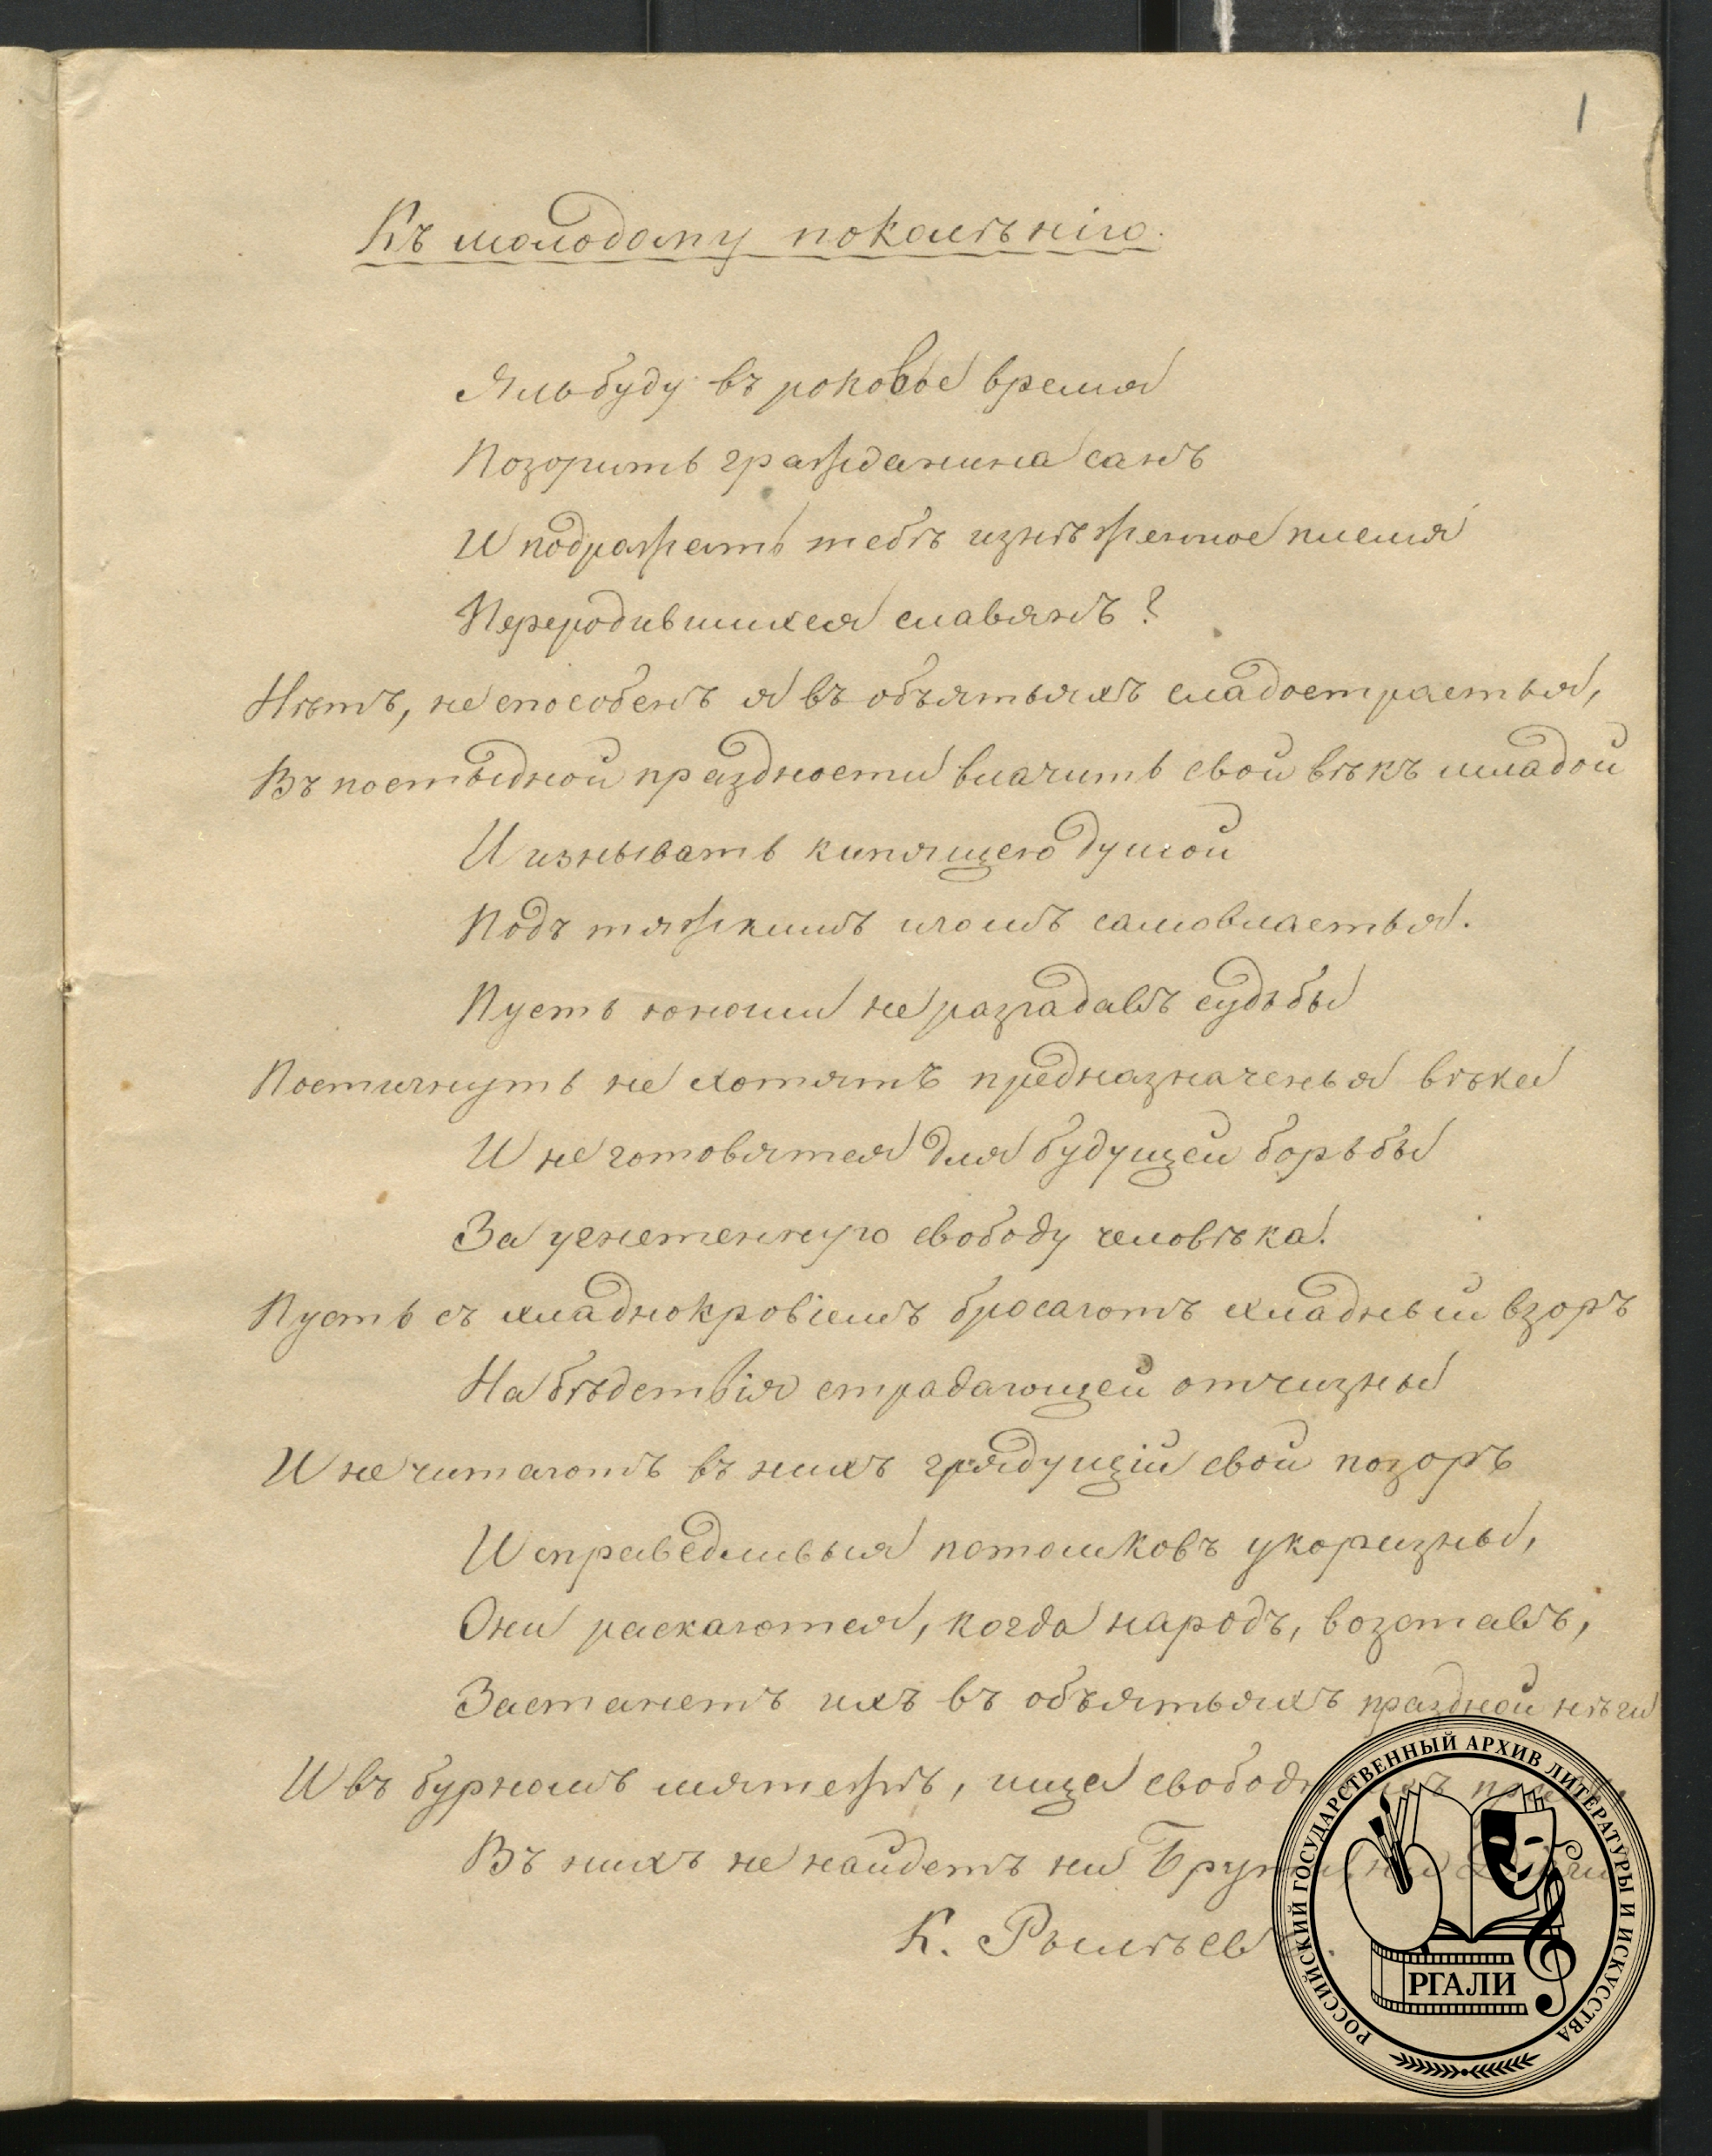 1
Къ молодому поколѣнію.
Яль буду въ роковое время
Позорить гражданина санъ
И подражать тебѣ изнѣженное племя
Переродившихся славянъ?
Нѣтъ, не способенъ я въ объятьяхъ сладострастья,
Въ постыдной праздности влачить свой вѣкъ младой
И изнывать кипящею душой
Подъ тяжкимъ игомъ самовластья.
Пусть юноши не разгадавъ судьбы
Постигнуть не хотятъ предназначенья вѣка
И не готовятся для будущей борьбы
За угнетенную свободу человѣка.
Пусть съ хладнокровіемъ бросаютъ хладный взоръ
На бѣдствія страдающей отчизны
И не читаютъ въ нихъ грядущій свой позоръ
И справедливыя потомковъ укоризны,
Они раскаются, когда народъ, возставъ,
Застанетъ ихъ въ объятьяхъ праздной нѣги
И въ бурномъ мятежѣ, ища
Въ нихъ не найдетъ ни Брута, ни
К. Рылѣевъ.
РОССИЙСКИЙ ГОСУДАРСТВЕННЫЙ АРХИВ ЛИТЕРАТУРЫ И ИСКУССТВА
РГАЛИ